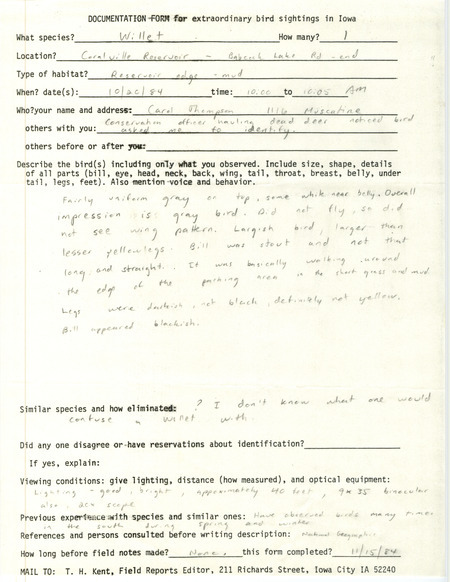 DOCUMENTATION FORM for extraordinary bird sightings in Iowa
What species? Willet How many? 1
Location? Coralville Reservoir - Babcock Lake Rd - end
Type of habitat? Reservoir edge - mud
When? date(s): 10/20/84 time: 10:00 to 10:05 AM
Who?your name and address: Carol Thompson 1116 Muscatine
Conservation officer hauling dead deer noticed bird
others with you: asked me to identify.
others before or after you:
Describe the bird(s) including only what you observed. Include size, shape, details
of all parts (bill, eye, head, neck, back, wing, tail, throat, breast, belly, under
tail, legs, feet). Also mention voice and behavior.
Fairly uniform gray on top, some white near belly. Overall
impression is: gray bird. Did not fly, so did
not see wing pattern. Largish bird, larger than
lesser yellowlegs. Bill was stout and not that
long and straight. It was basically walking around
the edge of the parking area in the short grass and mud.
Legs were darkish, not black, definitely not yellow.
Bill appeared blackish.
Similar species and how eliminated: ? I don't know what one would
confuse a willet with.
Did any one disagree or have reservations about identification?
If yes, explain:
Viewing conditions: give lighting, distance (how measured), and optical equipment:
Lighting - good, bright, approximately 40 feet, 9x35 binocular
also, 20x scope
Previous experience with species and similar ones: Have observed birds many times
in the south during spring and winter
References and persons consulted before writing description: National Geographic
How long before field notes made? None. this form completed? 11/15/84
MAIL TO: T. H. Kent, Field Reports Editor, 211 Richards Street, Iowa City IA 52240